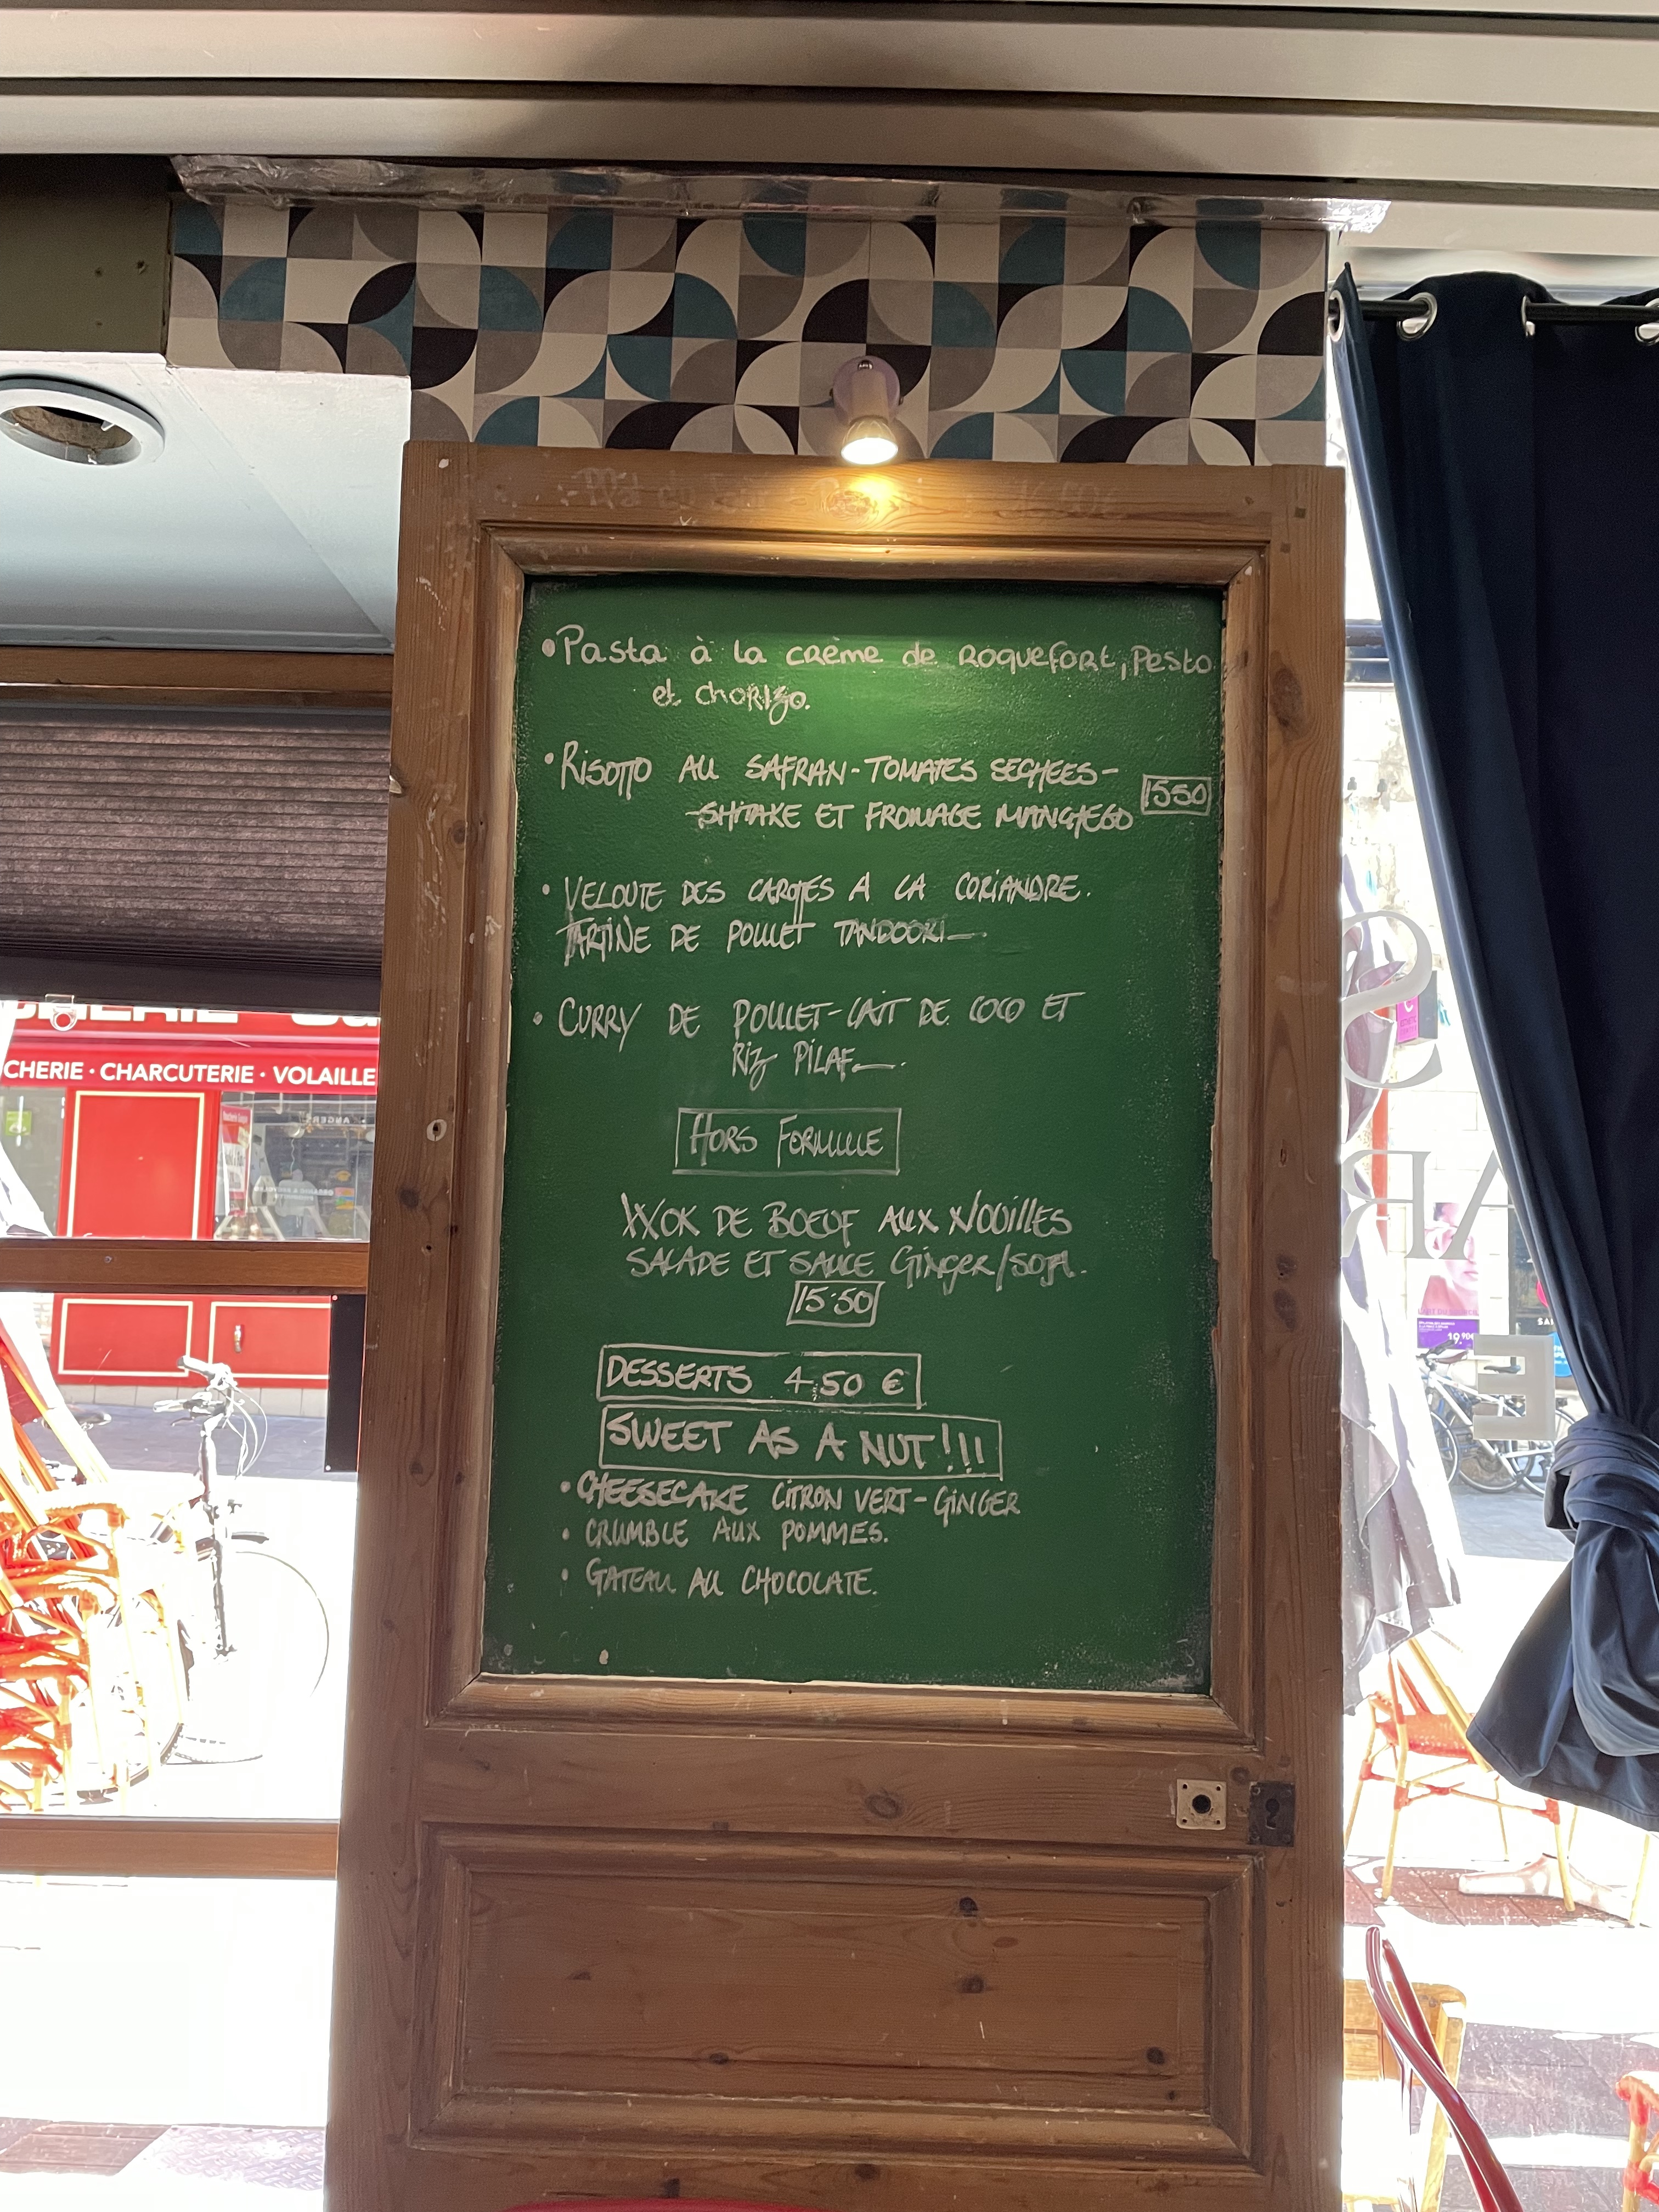 • Pasta à la crème de Roquefort, Pesto
et chorizo.
• RISOTTO AU SAFRAN - TOMATES SECHEES -
- SHITAKE ET FROMAGE MANCHEGO
1550
• VELOUTE DES CAROTTES A LA CORIANDRE.
TARTINE DE POULET TANDOORI —.
• CURRY DE POULET - LAIT DE COCO ET
RIZ PILAF. —.
HORS FORMULE
WOK DE BOEUF AUX NOUILLES
SALADE ET SAUCE GINGER/SOJA.
15.50
DESSERTS 4.50 €
SWEET AS A NUT!!!
• CHEESECAKE CITRON VERT - GINGER
• CRUMBLE AUX POMMES.
• GATEAU AU CHOCOLATE.
CHERIE · CHARCUTERIE · VOLAILLE
ANGERS
19,90€